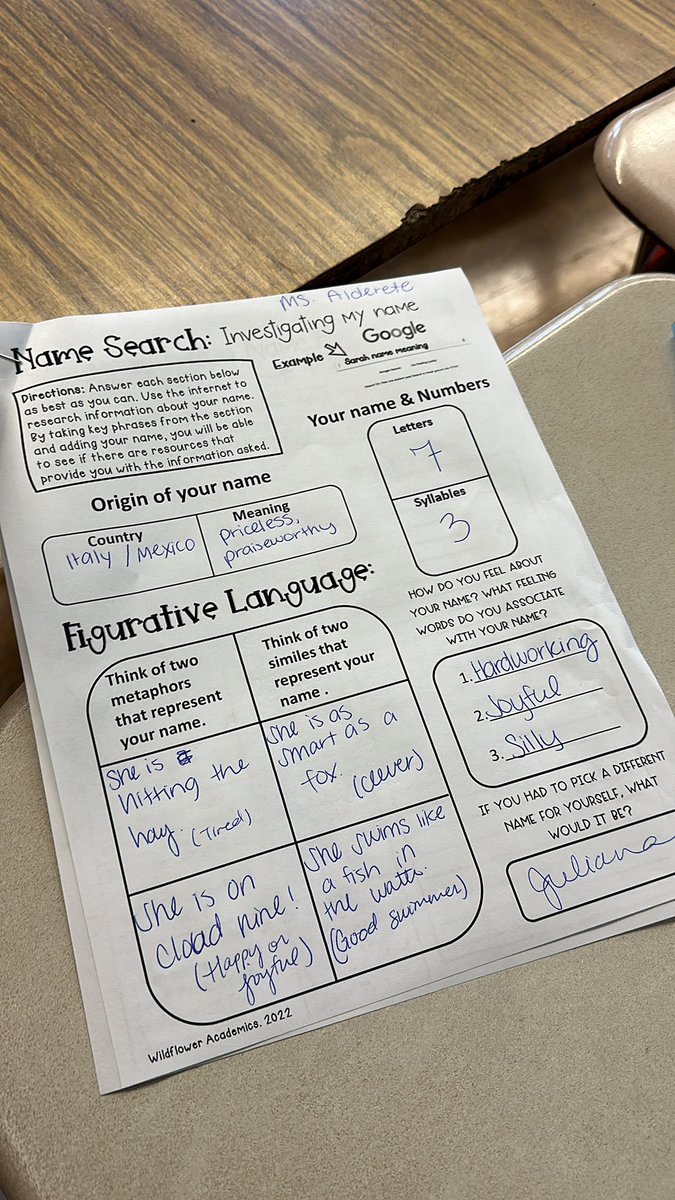 Ms. Alderete
Name Search: Investigating My name
Example
Google
Sarah name meaning
Directions: Answer each section below
as best as you can. Use the internet to
research information about your name.
By taking key phrases from the section
and adding your name, you will be able
to see if there are resources that
provide you with the information asked.
Your name & Numbers
Letters
7
Syllables
3
Origin of your name
Country
Italy / Mexico
Meaning
priceless,
praiseworthy
Figurative Language:
Think of two
metaphors
that represent
your name.
Think of two
similes that
represent your
name .
She is
hitting the
hay. (Tired)
She is as
smart as a
fox.
(clever)
She is on
cloud nine!
(Happy or
joyful)
She swims like
a fish in
the
(Good swimmer)
HOW DO YOU FEEL ABOUT
YOUR NAME? WHAT FEELING
WORDS DO YOU ASSOCIATE
WITH YOUR NAME?
1. Hardworking
2. Joyful
3. Silly
IF YOU HAD TO PICK A DIFFERENT
NAME FOR YOURSELF, WHAT
WOULD IT BE?
Juliana
Wildflower Academics, 2022